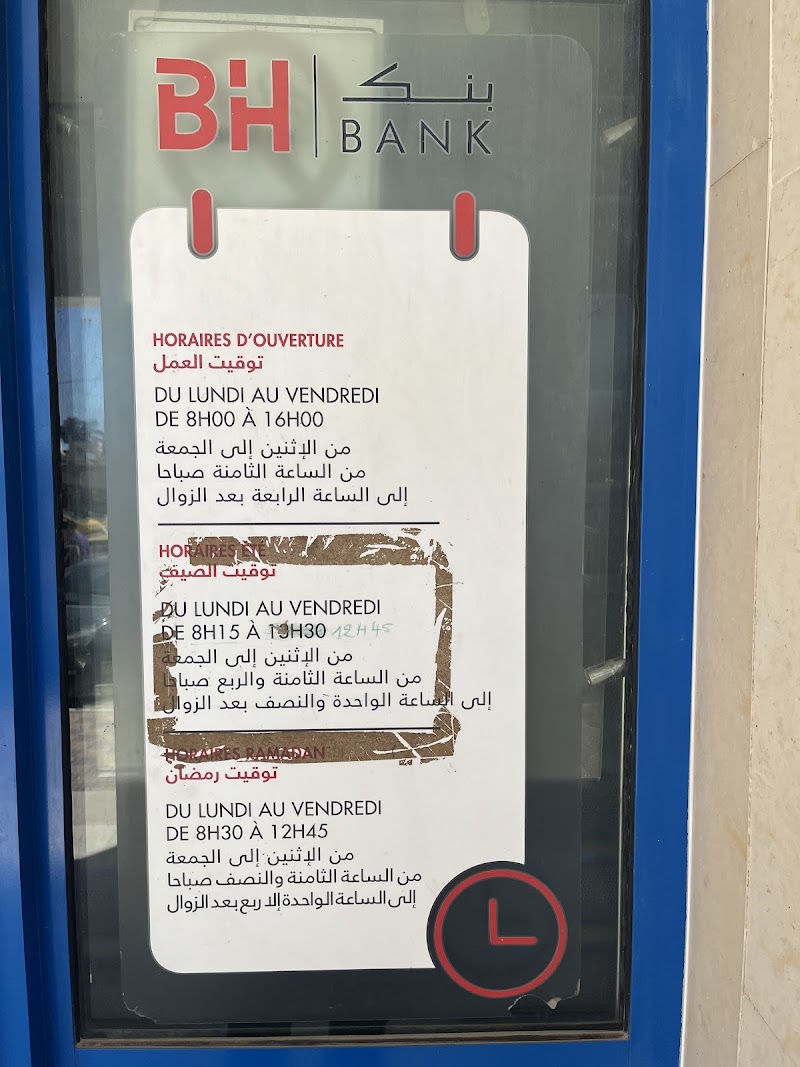 BH
بنك
BANK
HORAIRES D'OUVERTURE
توقيت العمل
DU LUNDI AU VENDREDI
DE 8H00 À 16H00
من الإثنين إلى الجمعة
من الساعة الثامنة صباحا
إلى الساعة الرابعة بعد الزوال
HORAIRES ÉTÉ
توقيت الصيف
DU LUNDI AU VENDREDI
DE 8H15 À 13H30 12H45
من الإثنين إلى الجمعة
من الساعة الثامنة والربع صباحا
إلى الساعة الواحدة والنصف بعد الزوال
HORAIRES RAMADAN
توقيت رمضان
DU LUNDI AU VENDREDI
DE 8H30 À 12H45
من الإثنين إلى الجمعة
من الساعة الثامنة والنصف صباحا
إلى الساعة الواحدة إلا ربع بعد الزوال